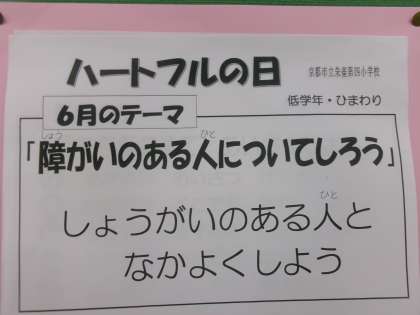 ハートフルの日
京都市立朱雀第四小学校
低学年・ひまわり
6月のテーマ
「障がいのある人についてしろう」
しょうがいのある人と
なかよくしよう